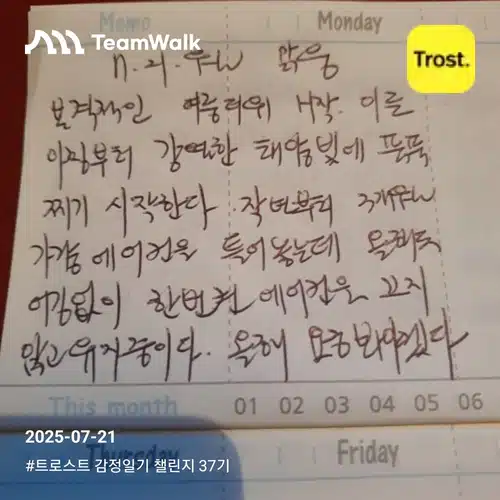 Memo
Monday
TeamWalk
Trost.
7. 21. 월 맑음
본격적인 여름더위 시작. 이른
아침부터 강렬한 태양빛에 푹푹
찌기 시작한다. 작년부터 3개월
가량 에어컨을 틀어놓는데 올해도
어김없이 한번 켠 에어컨은 끄지
않고 유지중이다. 올해
This month 01 02 03 04 05 06
2025-07-21
Thursday
Friday
#트로스트 감정일기 챌린지 37기